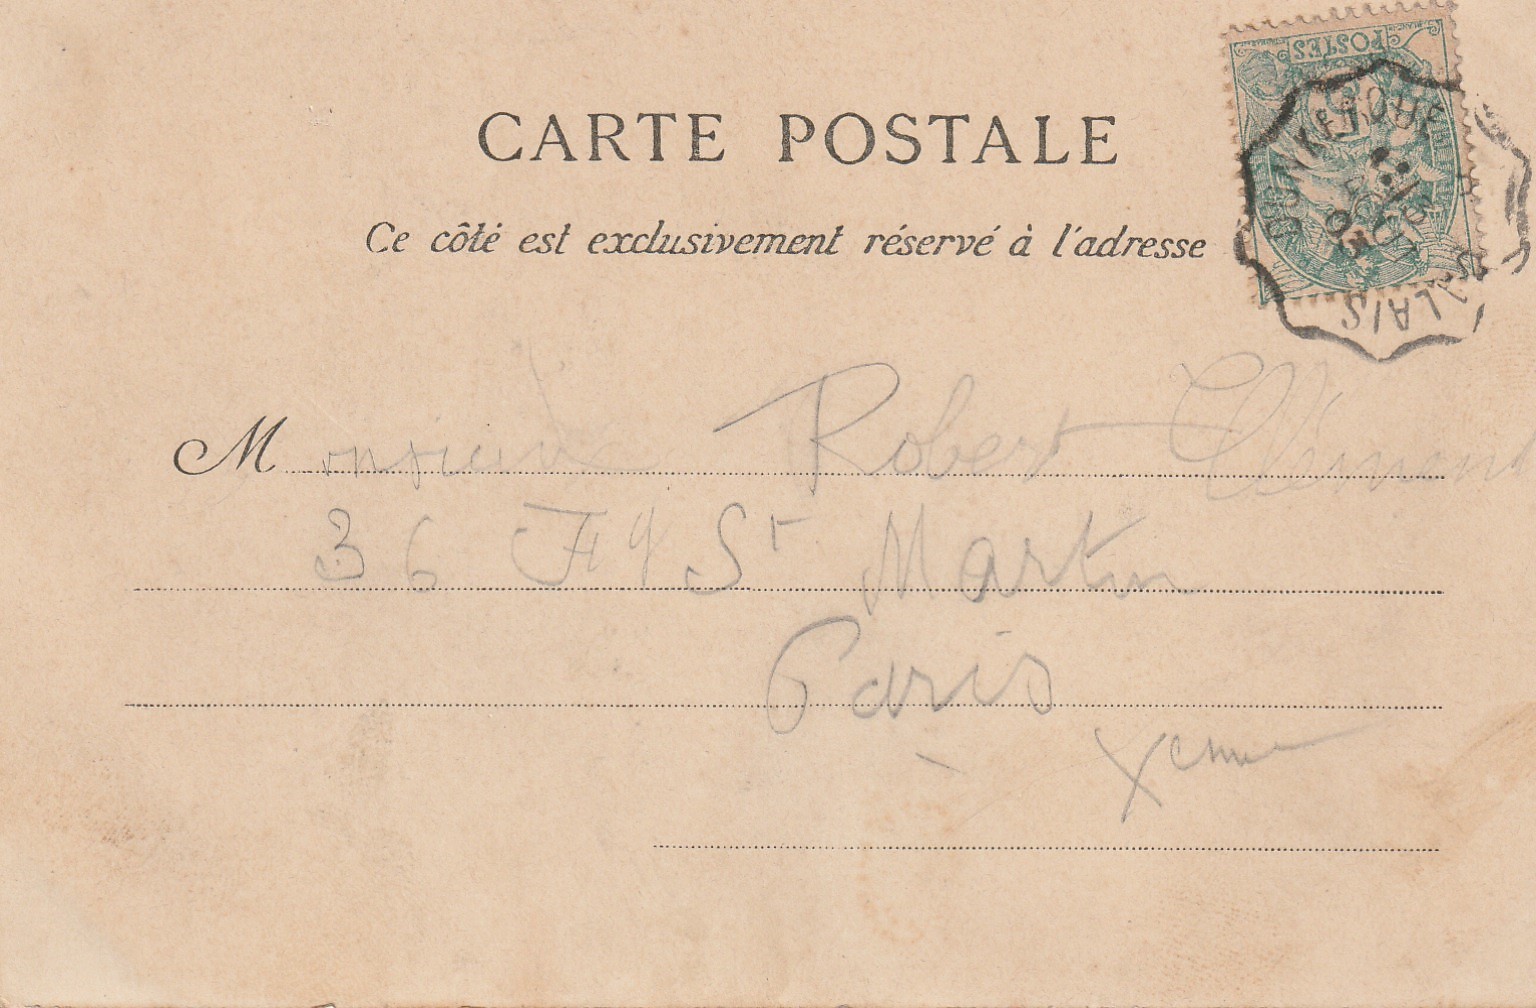 CARTE POSTALE
Ce côté est exclusivement réservé à l'adresse
POSTES
5
DUNKERQUE A CALAIS
Monsieur Robert Clément
36 Fg St Martin
Paris
Xeme